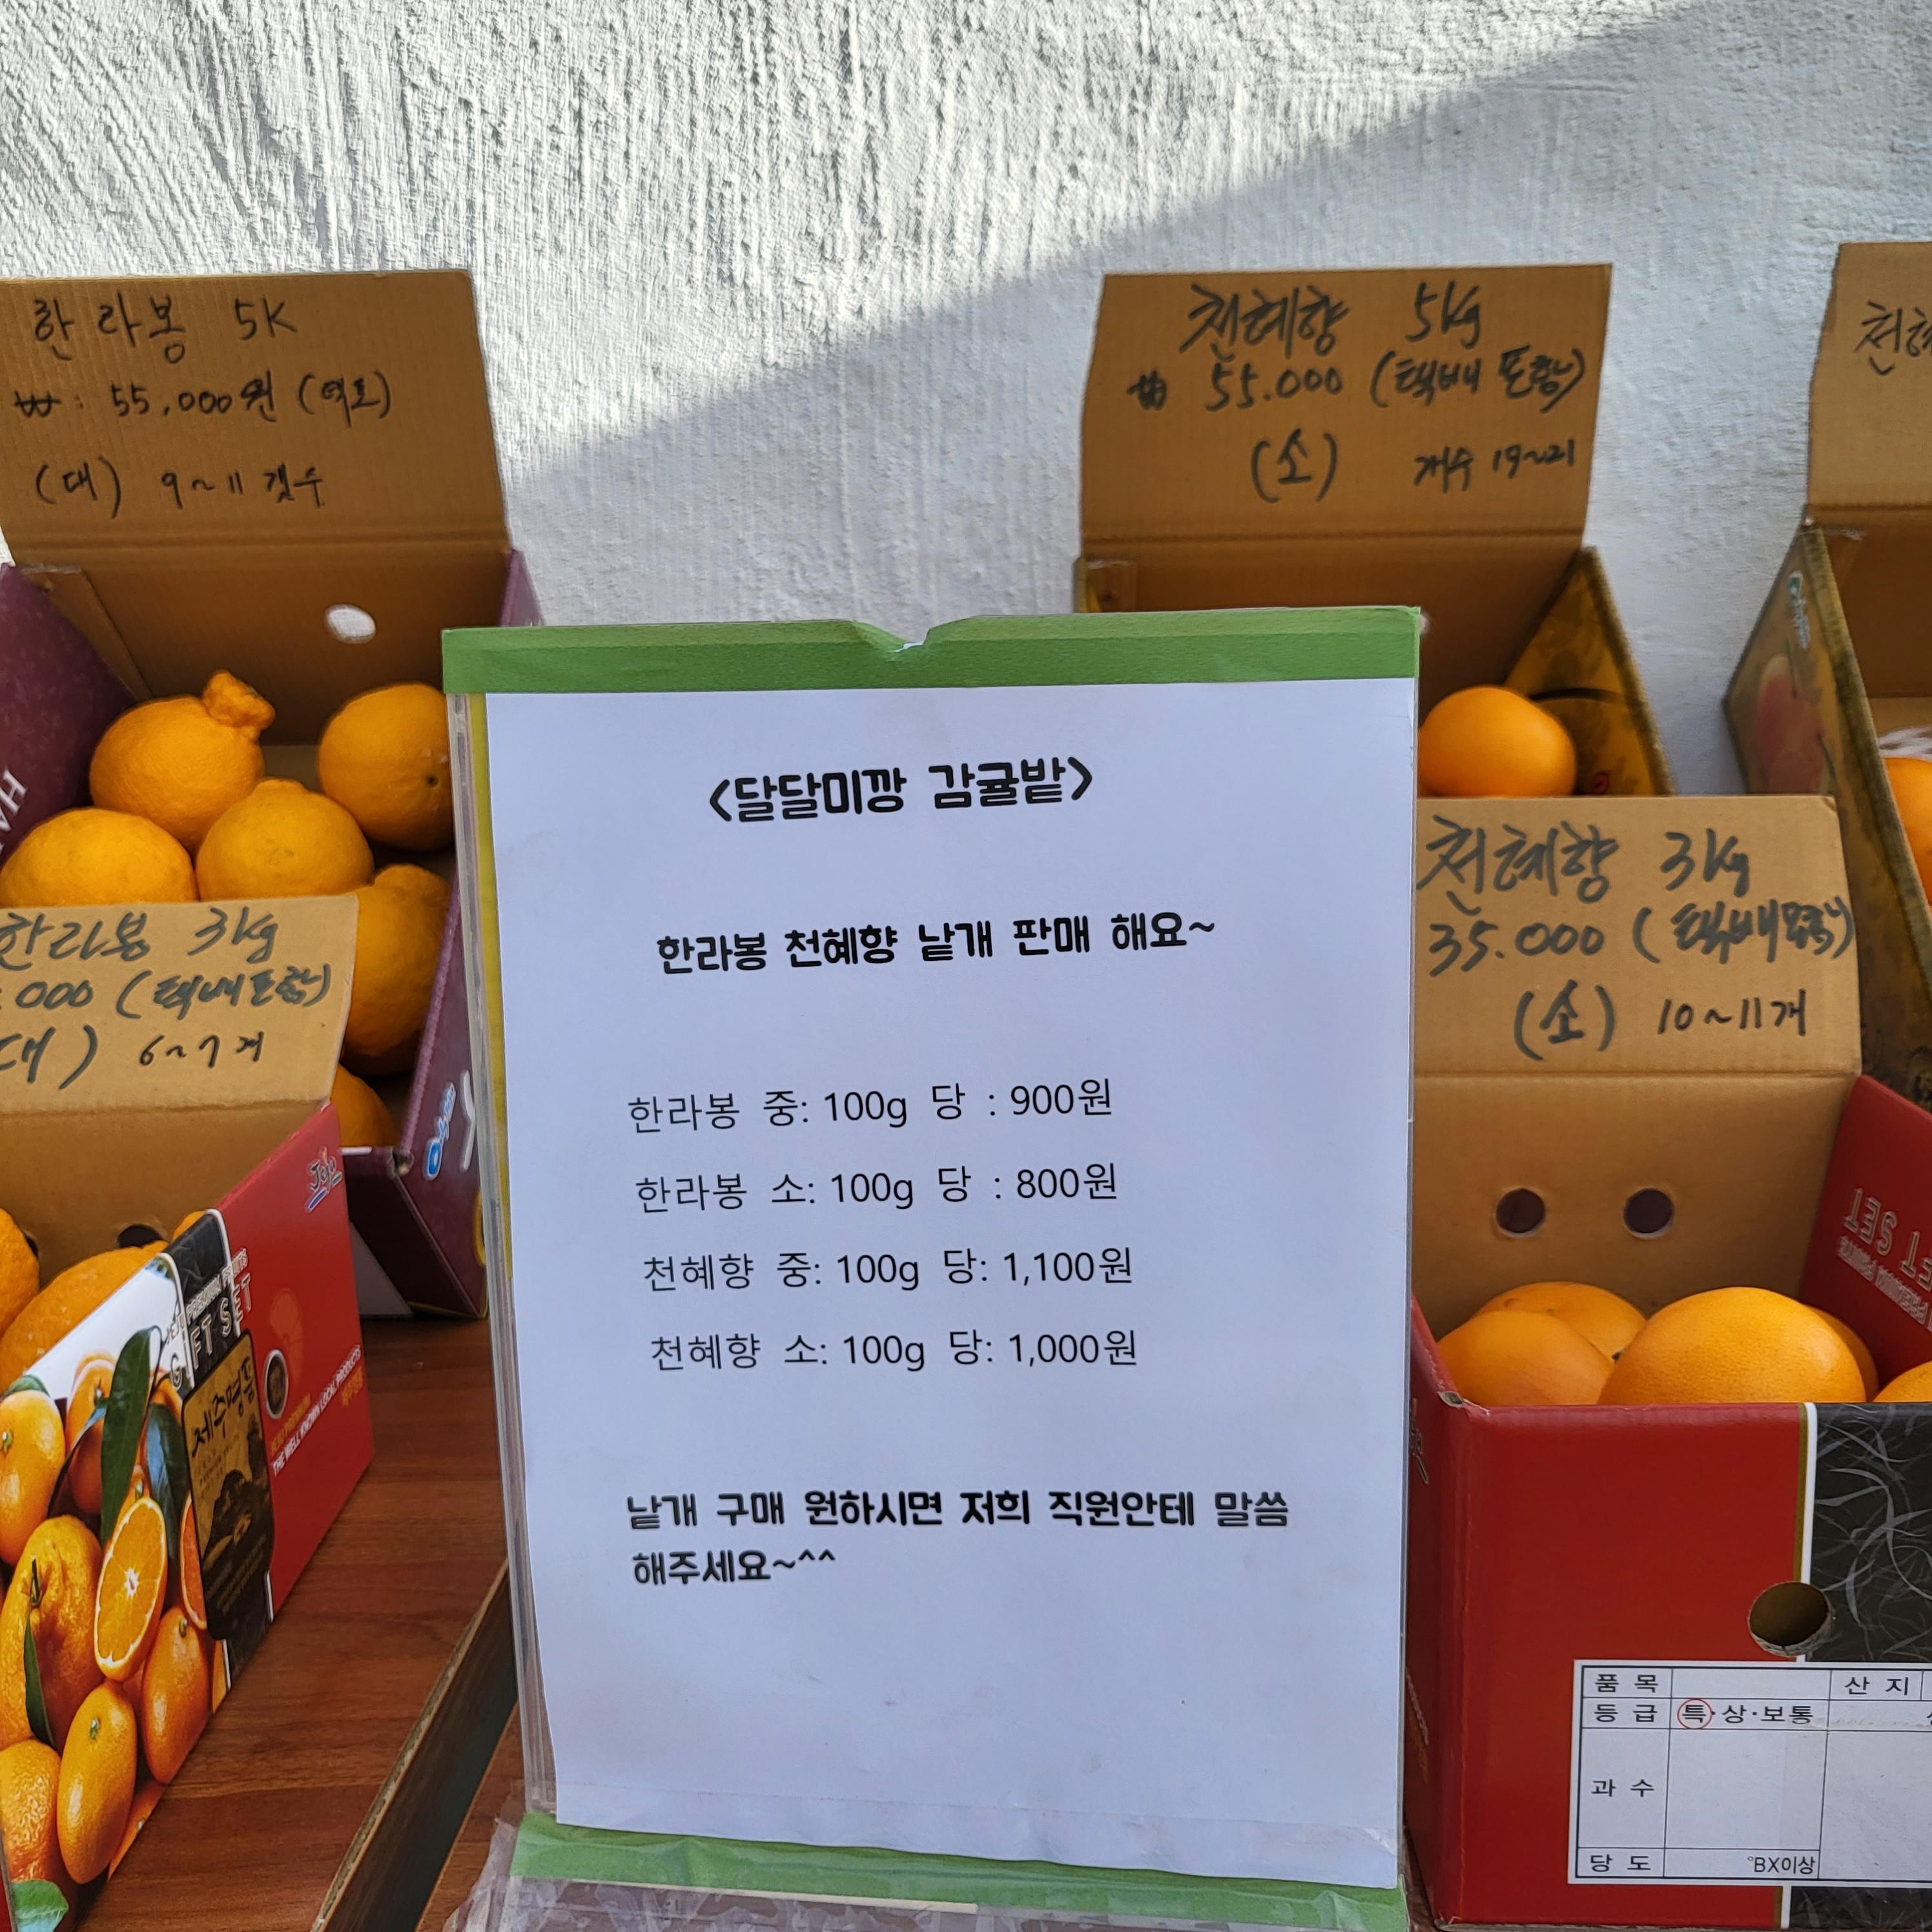 한라봉 5K
₩: 55,000원 (택포)
(대) 9~11 갯수
천혜향 5kg
₩ 55.000 (택배 포함)
(소) 개수 19~21
한라봉 3kg
000 (택배포함)
대) 6~7개
<달달미깡 감귤밭>
한라봉 천혜향 낱개 판매 해요~
한라봉 중: 100g 당 : 900원
한라봉 소: 100g 당 : 800원
천혜향 중: 100g 당: 1,100원
천혜향 소: 100g 당: 1,000원
낱개 구매 원하시면 저희 직원안테 말씀
해주세요~^^
천혜향 3kg
35.000 (택배포함)
(소) 10~11개
GIFT SET
제주명품
THE WELL KNOWN LOCAL PRODUCTS
품 목
산 지
등 급 특·상·보통
과 수
당 도 °BX이상